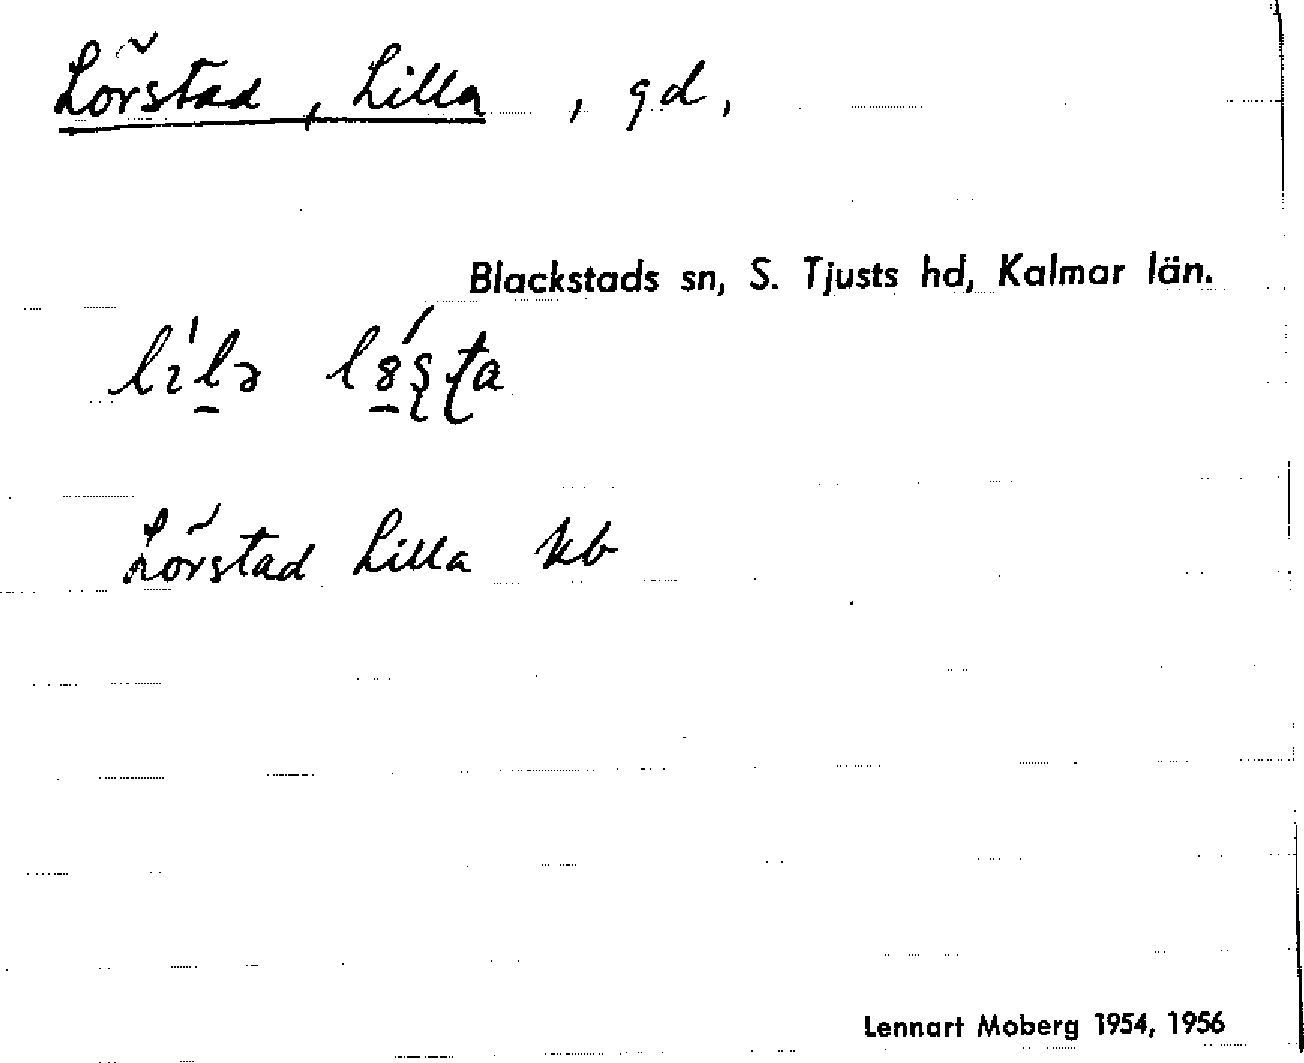 Lörstad, Lilla, gd,
Blackstads sn, S. Tjusts hd, Kalmar län.
Lörstad Lilla kb
Lennart Moberg 1954, 1956